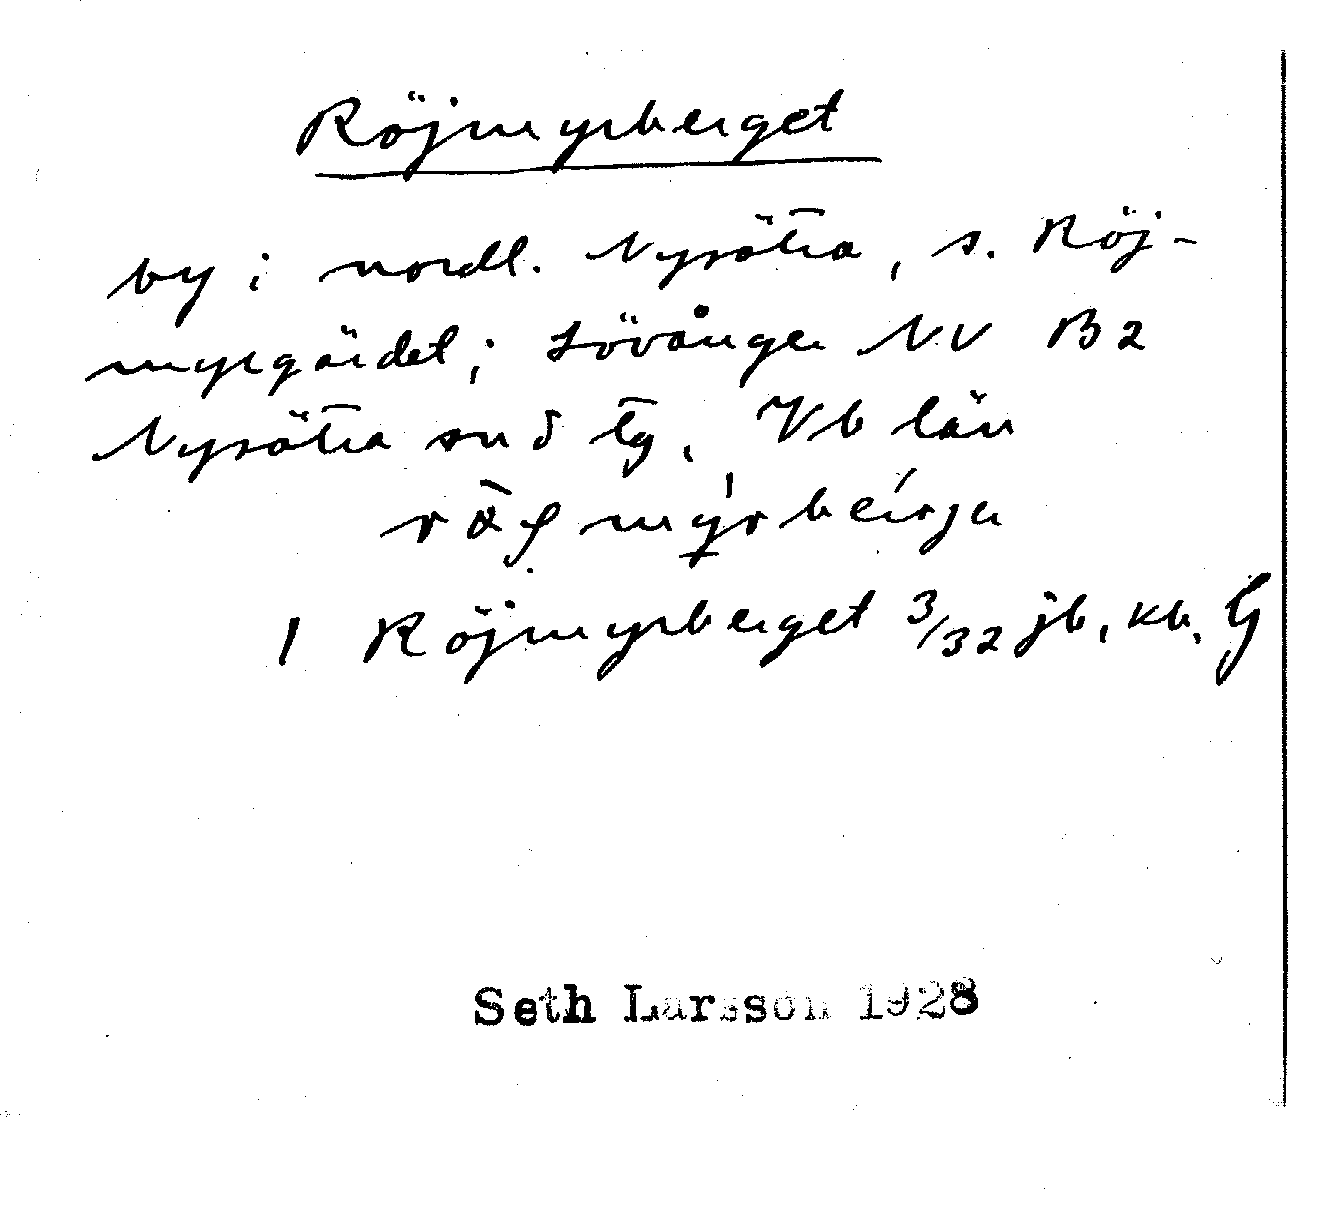 Röjmyrberget
by i nordl. Nysätra, s. Röj-
myrgärdet; Lövånger NV B2
Nysätra sn o tg. Vb län
mýrbeirja
1 Röjmyrberget 3/32 jb, kb, G
Seth Larsson 1928